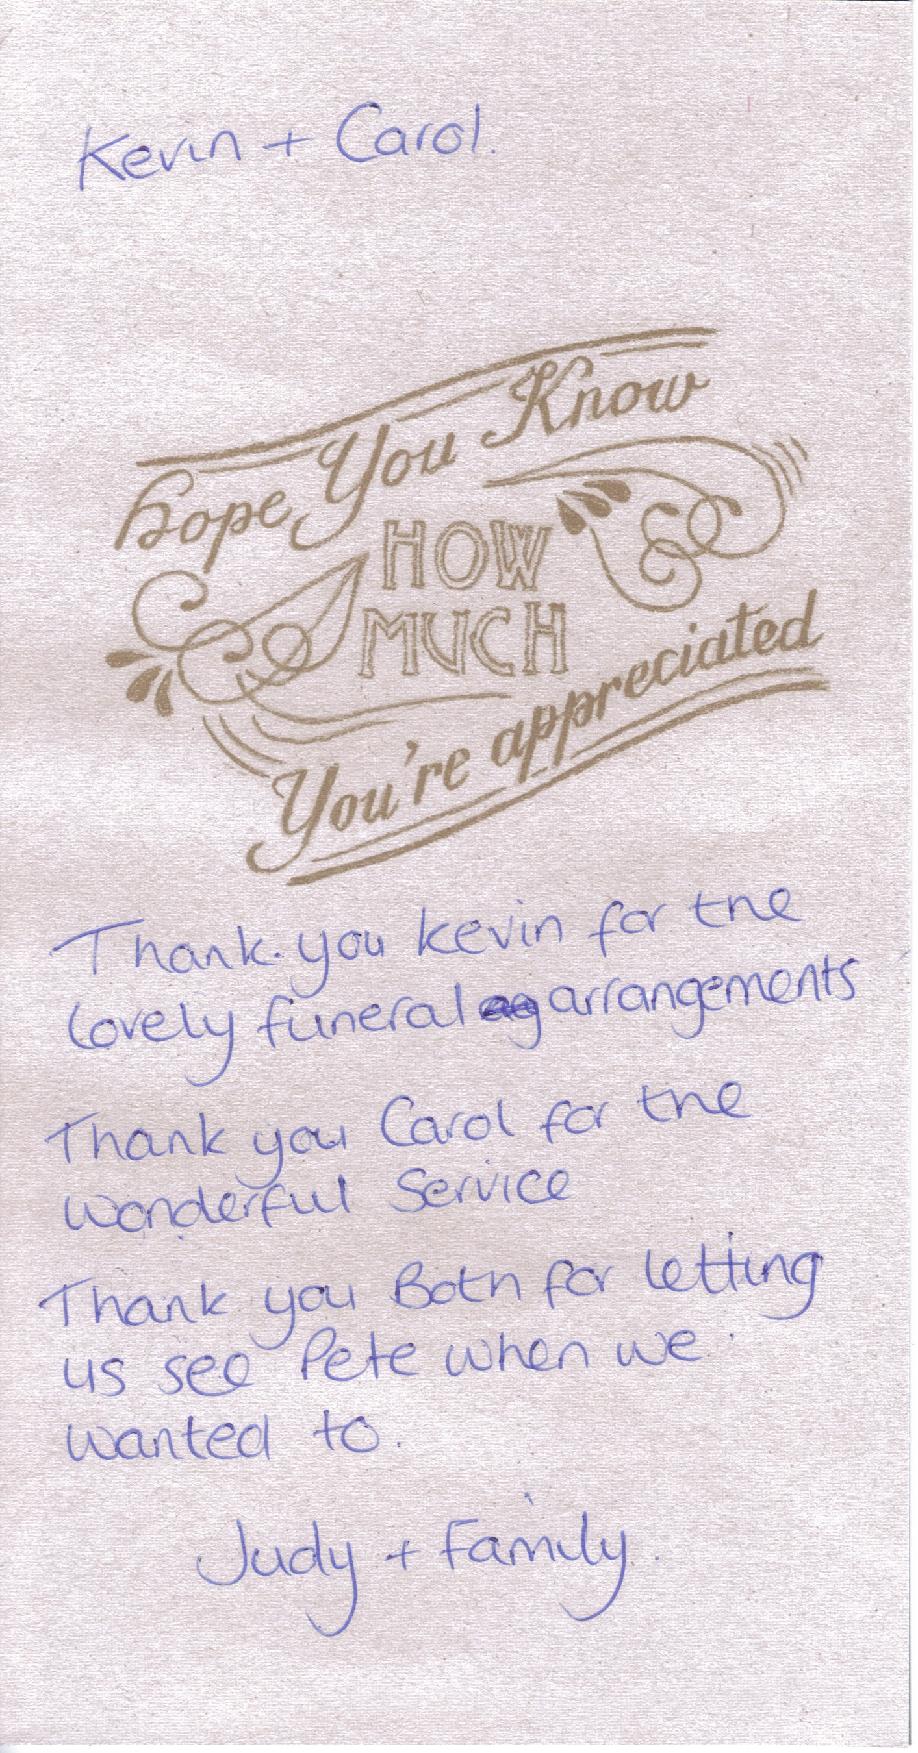 Kevin + Carol.
hope You Know
HOW
MUCH
You're appreciated
Thank you Kevin for the
lovely funeral arrangements
Thank you Carol for the
wonderful Service
Thank you Both for letting
us see Pete when we
wanted to.
Judy + Family.